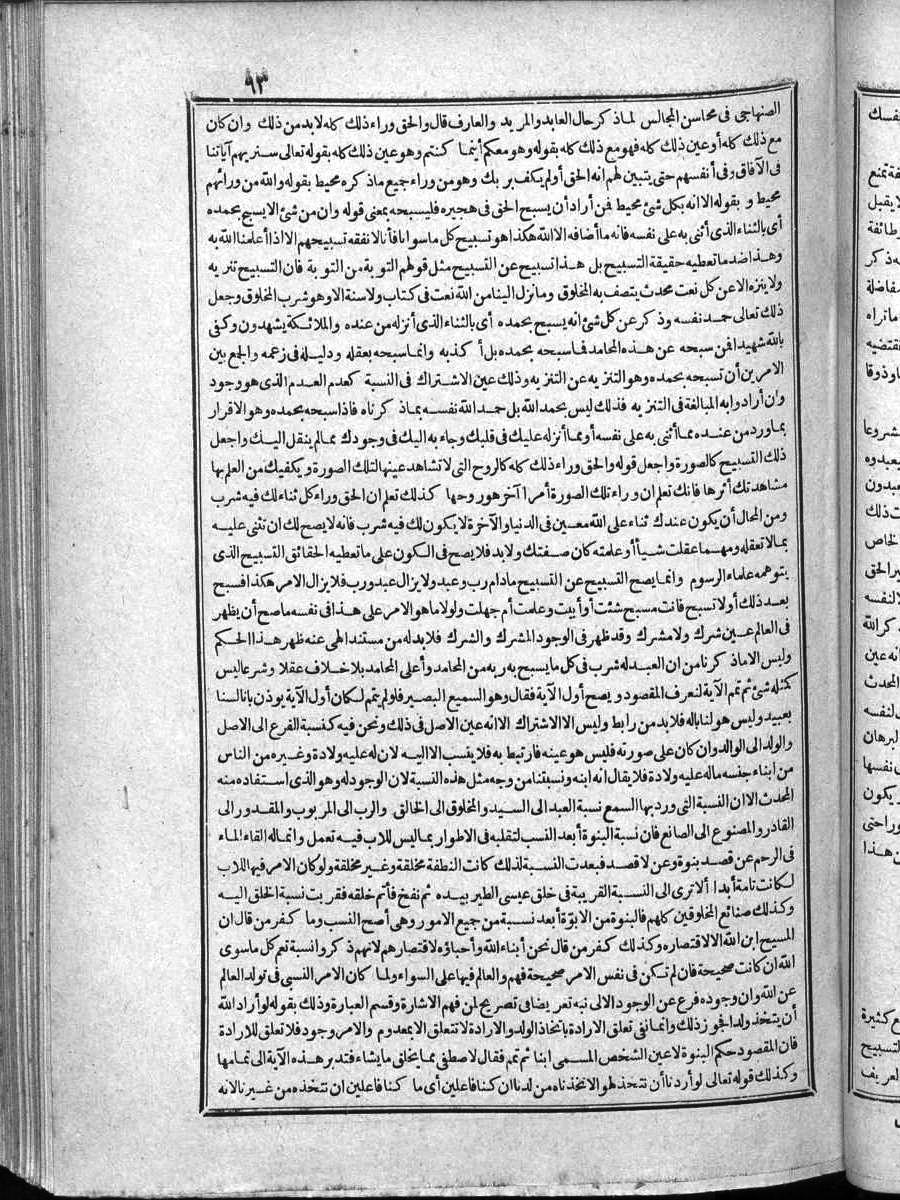 ٩٣
الصنهاجى فى محاسن المجالس لماذكر حال العابد والمريد والعارف قال والحق وراء ذلك كله لابد من ذلك وان كان
مع ذلك كله أوعين ذلك كله فهو مع ذلك كله بقوله وهو معكم أينما كنتم وهو عين ذلك كله بقوله تعالى سنريهم آياتنا
فى الآفاق وفى أنفسهم حتى يتبين لهم انه الحق أولم يكف بربك وهو من وراء جميع ماذكره محيط بقوله والله من ورائهم
محيط و بقوله الاانه بكل شئ محيط فمن أراد أن يسبح الحق فى هجيره فليسبحه بمعنى قوله وان من شئ الايسبح بحمده
أى بالثناء الذى أثنى به على نفسه فانه ماأضافه الاالله هكذا هو تسبيح كل ماسوانا فأنا لانفقه تسبيحهم الااذا أعلمنا الله به
وهذا ضد ماتعطيه حقيقة التسبيح بل هذا تسبيح عن التسبيح مثل قولهم التوبة من التوبة فان التسبيح تنزيه
ولاينزه الاعن كل نعت محدث يتصف به المخلوق ومانزل الينا من الله نعت فى كتاب ولاسنة الاوهو شرب المخلوق وجعل
ذلك تعالى حمد نفسه وذكر عن كل شئ انه يسبح بحمده أى بالثناء الذى أنزله من عنده والملائكة يشهدون وكفى
بالله شهيدا فمن سبحه عن هذه المحامد فماسبحه بحمده بل أكذبه وانماسبحه بعقله ودليله فى زعمه والجمع بين
الامرين أن تسبحه بحمده وهو التنزيه عن التنزيه وذلك عين الاشتراك فى النسبة كعدم العدم الذى هو وجود
وان أرادوابه المبالغة فى التنزيه فذلك ليس بحمد الله بل حمد الله نفسه بماذكرناه فاذا سبحه بحمده وهو الاقرار
بماورد من عنده مماأثنى به على نفسه أومماأنزله عليك فى قلبك وجاء به اليك فى وجودك ممالم ينقل اليك واجعل
ذلك التسبيح كالصورة واجعل قوله والحق وراء ذلك كله كالروح التى لاتشاهد عينها لتلك الصورة ويكفيك من العلم بها
مشاهدتك أثرها فانك تعلم ان وراء تلك الصورة أمرا آخر هو روحها كذلك تعلم ان الحق وراء كل ثناء لك فيه شرب
ومن المحال أن يكون عندك ثناء على الله معين فى الدنيا والآخرة لايكون لك فيه شرب فانه لايصح لك ان تثنى عليه
بمالاتعقله ومهما عقلت شيأ أوعلمته كان صفتك ولابد فلايصح فى الكون على ماتعطيه الحقائق التسبيح الذى
يتوهمه علماء الرسوم وانمايصح التسبيح عن التسبيح مادام رب وعبد ولايزال عبد ورب فلايزال الامر هكذا فسبح
بعد ذلك أولاتسبح فانت مسبح شئت أوأبيت وعلمت أم جهلت ولولا ماهو الامر على هذا فى نفسه ماصح أن يظهر
فى العالم عين شرك ولامشرك وقد ظهر فى الوجود المشرك والشرك فلابدله من مستند الهى عنه ظهر هذا الحكم
وليس الاماذكرنا من ان العبد له شرب فى كل مايسبح به ربه من المحامد وأعلى المحامد بلاخلاف عقلا وشرعا ليس
كمثله شئ ثم تمم الآية لنعرف المقصود ويصح أول الآية فقال وهو السميع البصير فلولم يتمم لكان أول الآية يوذن بانالسنا
بعبيد وليس هو لنا باله فلابد من رابط وليس الاالاشتراك الاانه عين الاصل فى ذلك ونحن فيه كنسبة الفرع الى الاصل
والولد الى الوالد وان كان على صورته فليس هو عينه فارتبط به فلاينسب الااليه لان له عليه ولادة وغيره من الناس
من ابناء جنسه ماله عليه ولادة فلايقال انه ابنه ونسبتنا من وجه مثل هذه النسبة لان الوجود له وهو الذى استفاده منه
المحدث الاان النسبة التى ورد بها السمع نسبة العبد الى السيد والمخلوق الى الخالق والرب الى المربوب والمقدور الى
القادر والمصنوع الى الصانع فان نسبة البنوة أبعد النسب لتقلبه فى الاطوار بماليس للاب فيه تعمل وانماله القاء الماء
فى الرحم عن قصد بنوة وعن لاقصد فبعدت النسبة لذلك كانت النطفة مخلقة وغير مخلقة ولو كان الامر فيها للاب
لكانت تامة أبدا ألاترى الى النسبة القريبة فى خلق عيسى الطير بيده ثم نفخ فأتم خلقه فقربت نسبة الخلق اليه
وكذلك صنائع المخلوقين كلهم فالبنوة من الابوّة أبعد نسبة من جميع الامور وهى أصح النسب وما كفر من قال ان
المسيح ابن الله الالاقتصاره وكذلك كفر من قال نحن أبناء الله وأحباؤه لاقتصارهم لانهم ذكروا نسبة تعم كل ماسوى
الله ان كانت صحيحة فان لم تكن فى نفس الامر صحيحة فهم والعالم فيها على السواء ولما كان الامر النسبى فى تولد العالم
عن الله وان وجوده فرع عن الوجود الالهى نبه تعريضا فى تصريح لمن فهم الاشارة وقسم العبارة وذلك بقوله لو أراد الله
أن يتخذ ولدا فجوز ذلك وانمانفى تعلق الارادة باتخاذ الولد والارادة لاتتعلق الابمعدوم والامر وجود فلاتعلق للارادة
فان المقصود حكم البنوة لاعين الشخص المسمى ابنا ثم تمم فقال لاصطفى ممايخلق مايشاء فتدبر هذه الآية الى تمامها
وكذلك قوله تعالى لو أردنا أن نتخذ لهوا لاتخذناه من لدنا ان كنا فاعلين أى ما كنا فاعلين ان نتخذه من غيرنا لانه